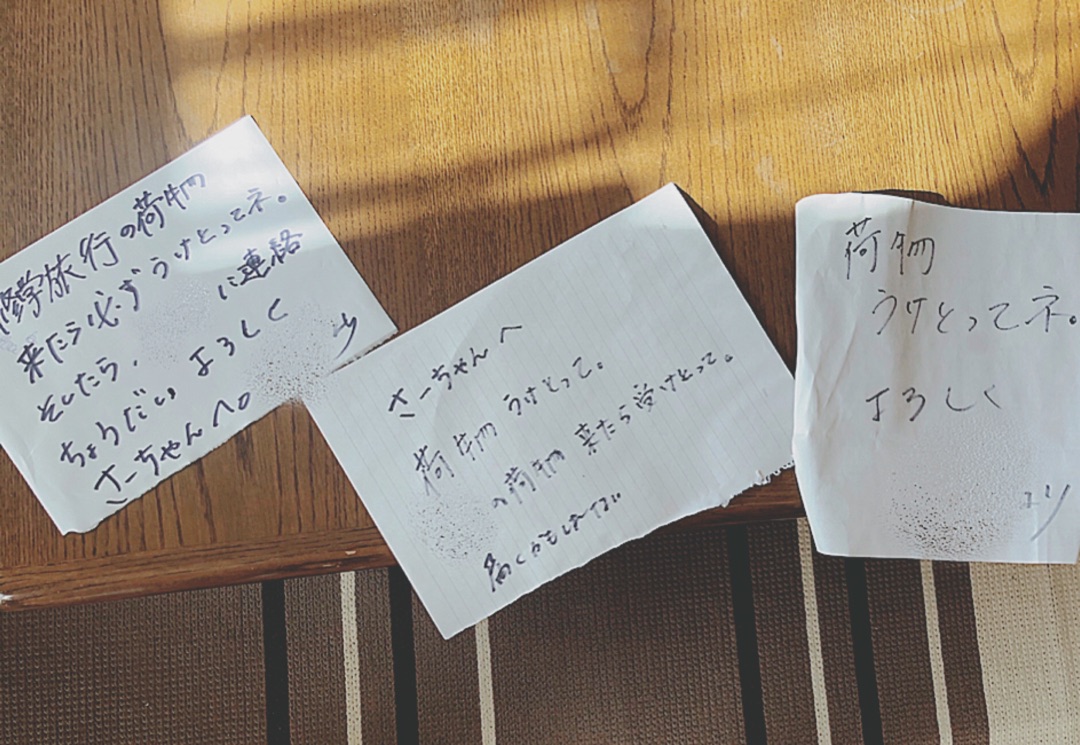 修学旅行の荷物
来たら必ずうけとってネ。
そしたら、 に連絡
ちょうだい よろしく
さーちゃんへ
さーちゃんへ
荷物 うけとって。
の荷物 来たら受けとって。
届くかもしれない
荷物
うけとってネ。
よろしく